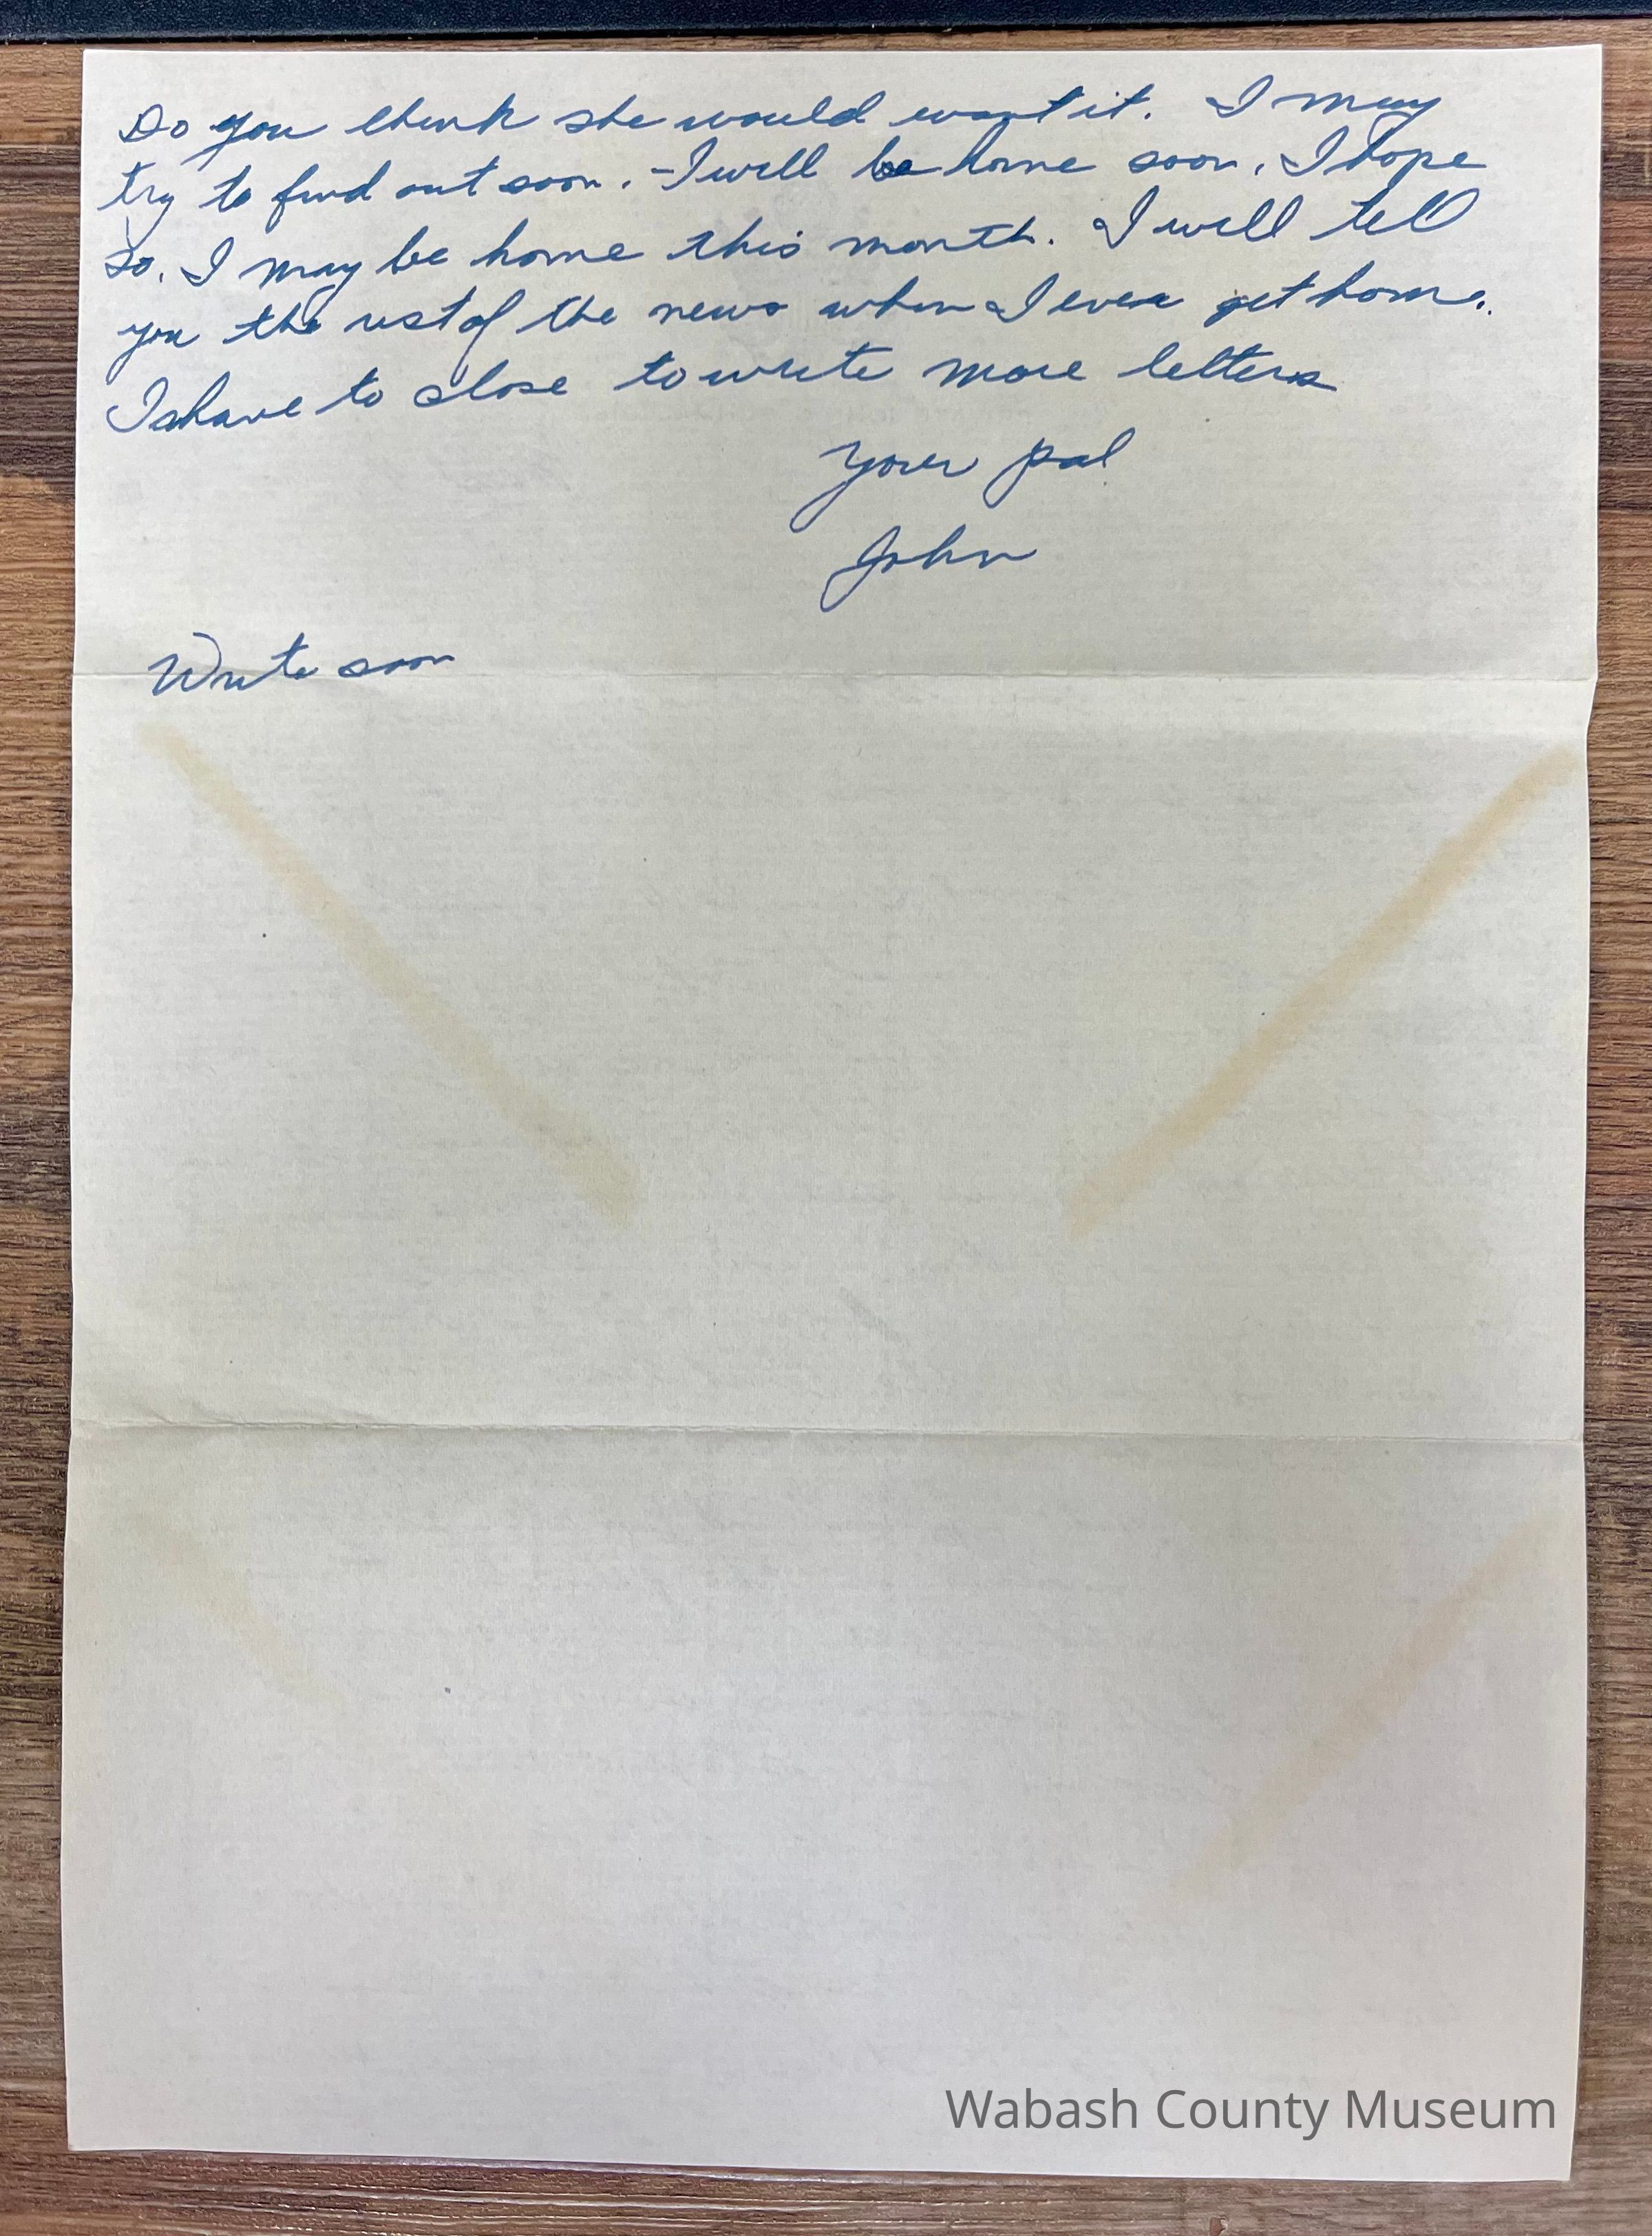 Do you think she would want it. I may
try to find out soon. - I will be home soon. I hope
so. I may be home this month. I will tell
you the rest of the news when I ever get home.
I have to close to write more letters
Your pal
John
Write soon
Wabash County Museum